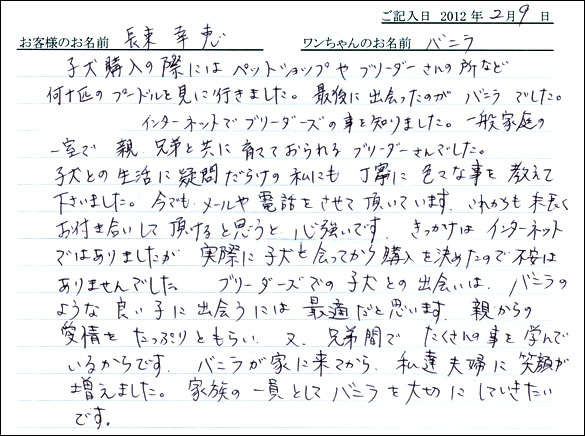 ご記入日 2012年 2月 9日
お客様のお名前 長束 幸恵 ワンちゃんのお名前 バニラ
子犬購入の際には ペットショップや ブリーダーさんの所など
何十匹の プードルを見に行きました。 最後に出会ったのが バニラ でした。
インターネットで ブリーダーズの事を知りました。 一般家庭の
一室で 親 兄弟と共に育てておられる ブリーダーさんでした。
子犬との生活に疑問だらけの私にも 丁寧に色々な事を教えて
下さいました。今でも メールや 電話をさせて頂いています. これからも末長く
お付き合いして頂けると思うと 心強いです. きっかけは インターネット
ではありましたが 実際に子犬と会ってから購入を決めたので不安は
ありませんでした ブリーダーズでの子犬との出会いは、バニラの
ような良い子に出会うには 最適だと思います. 親からの
愛情を たっぷりともらい 又、兄弟間で たくさんの事を学んで
いるからです. バニラが家に来てから、私達夫婦に笑顔が
増えました。 家族の一員として バニラを大切に していきたい
です。